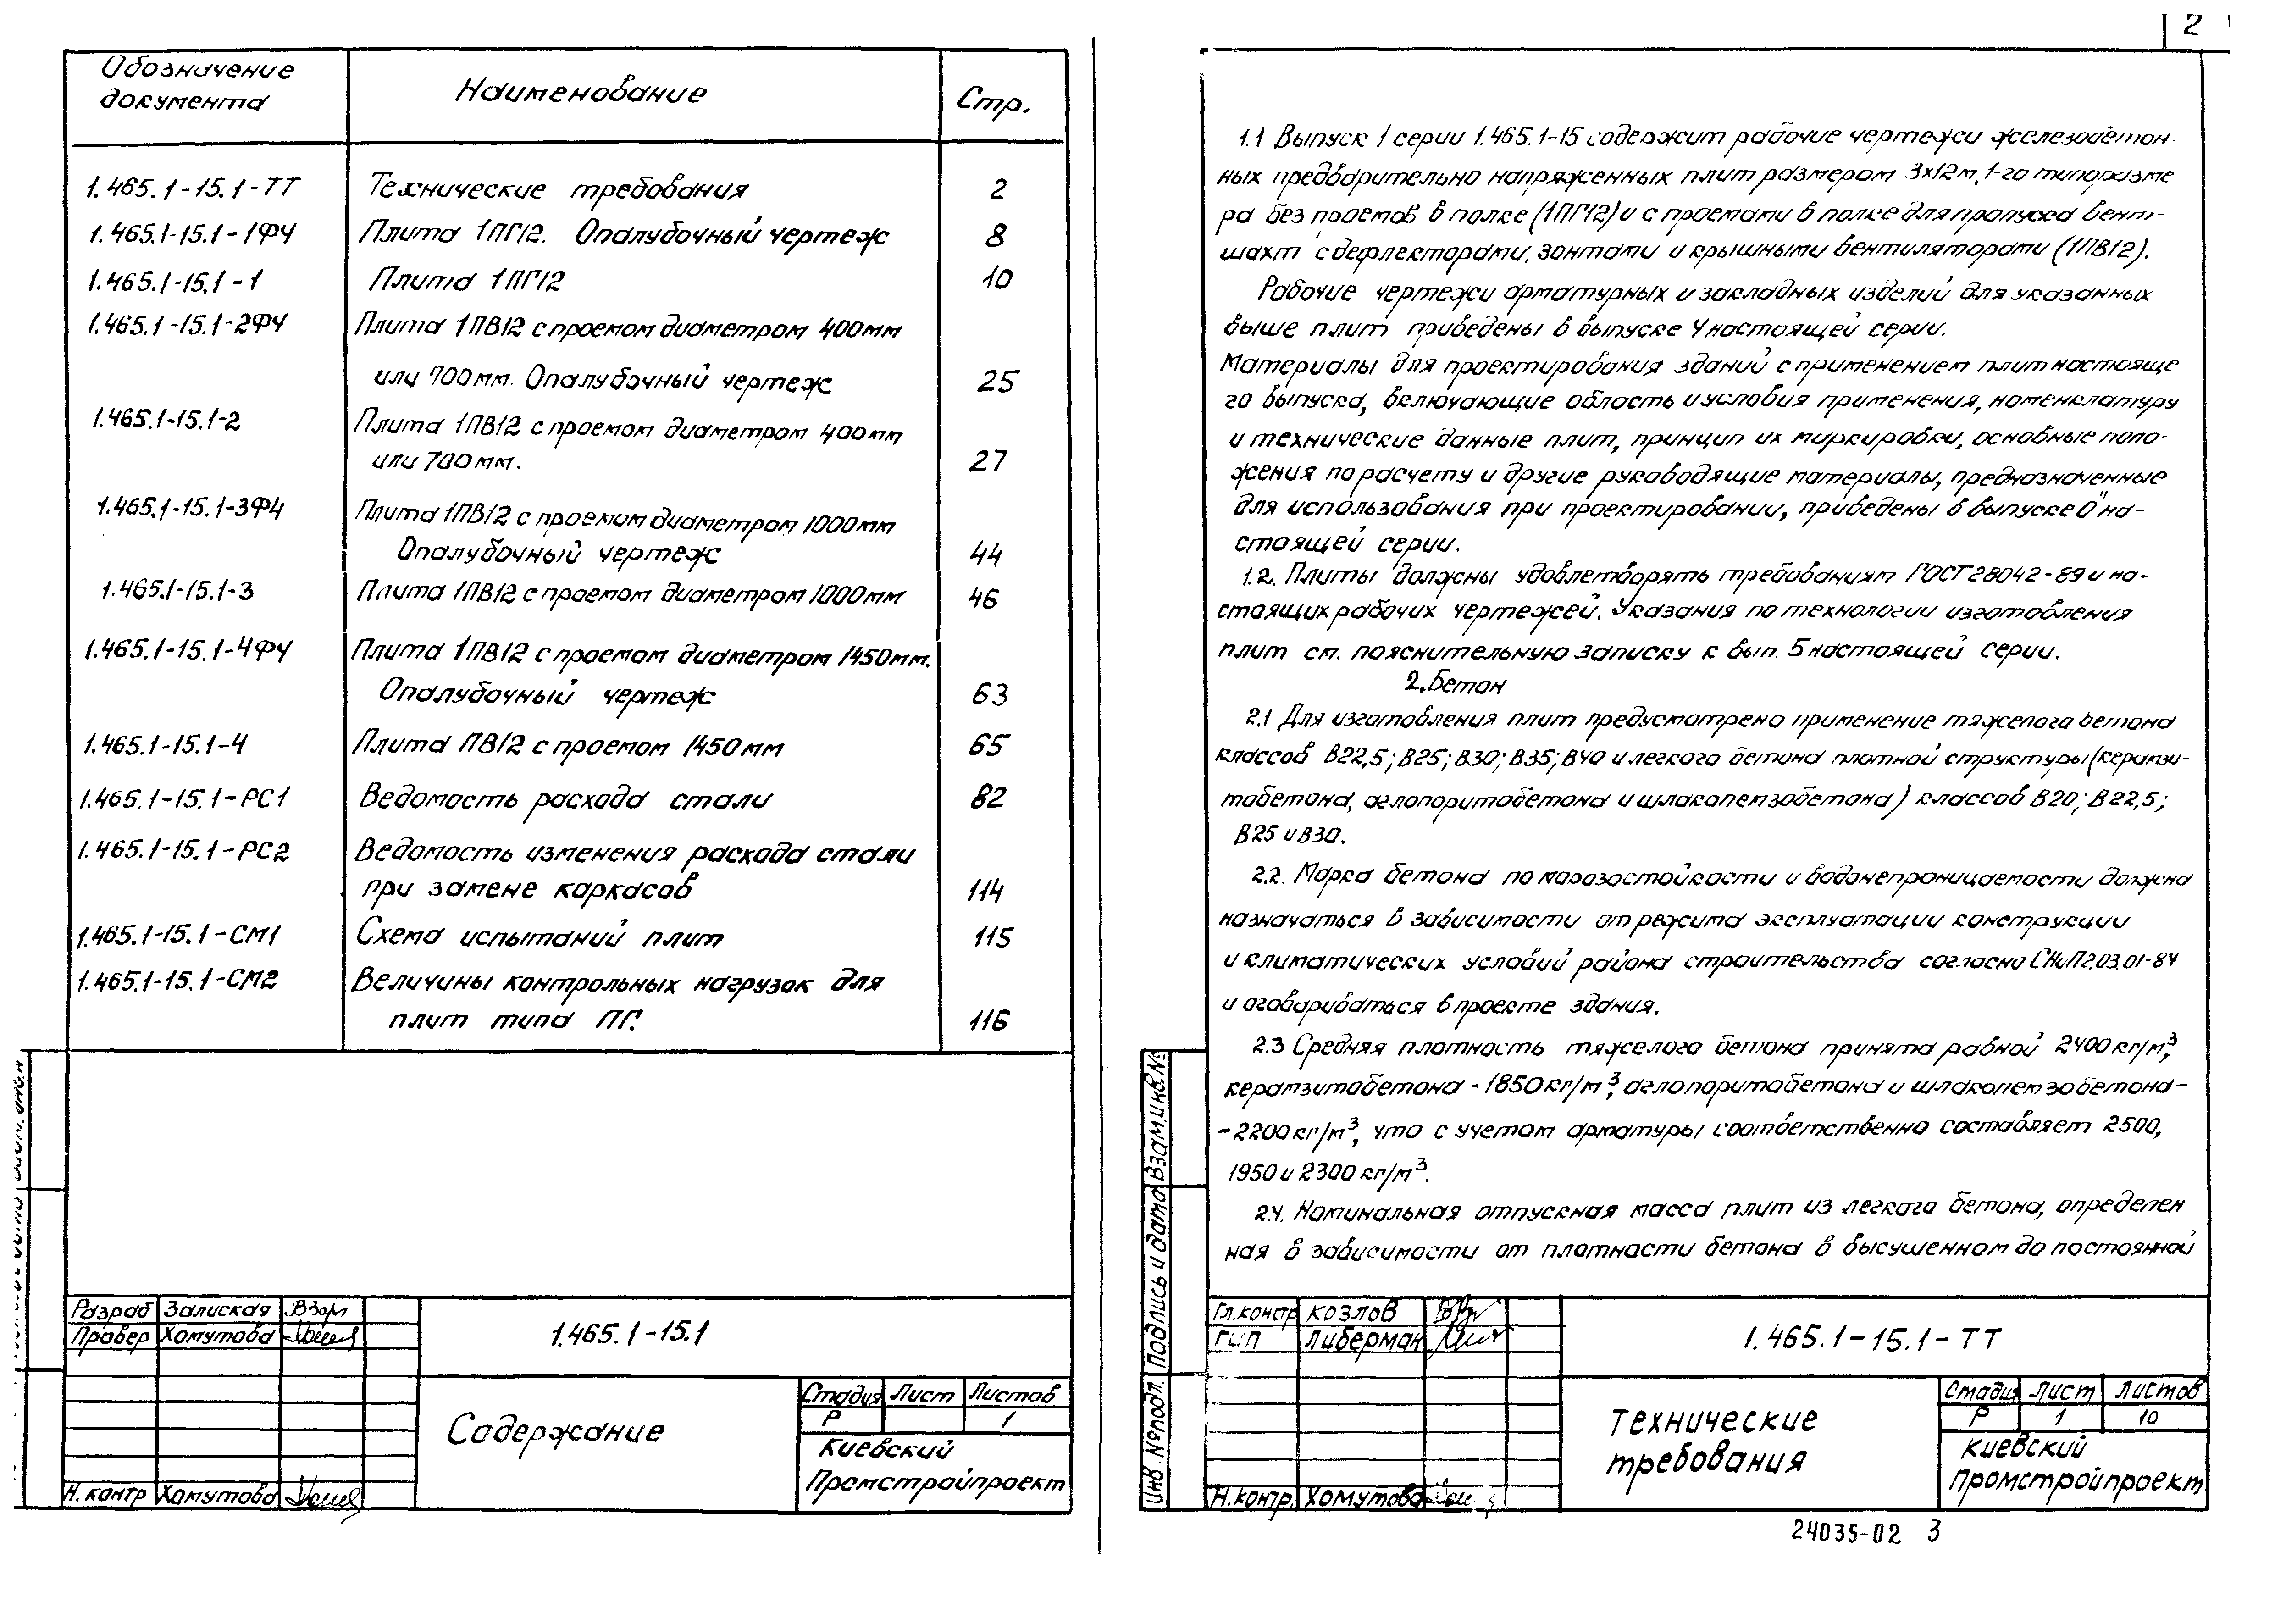 Обозначение документа Наименование Стр.
1.465.1-15.1-ТТ Технические требования 2
1.465.1-15.1-1ФЧ Плита 1ПГ12. Опалубочный чертеж 8
1.465.1-15.1-1 Плита 1ПГ12 10
1.465.1-15.1-2ФЧ Плита 1ПВ12 с проемом диаметром 400мм
или 700мм. Опалубочный чертеж 25
1.465.1-15.1-2 Плита 1ПВ12 с проемом диаметром 400мм
или 700мм. 27
1.465.1-15.1-3ФЧ Плита 1ПВ12 с проемом диаметром 1000мм
Опалубочный чертеж 44
1.465.1-15.1-3 Плита 1ПВ12 с проемом диаметром 1000мм 46
1.465.1-15.1-4ФЧ Плита 1ПВ12 с проемом диаметром 1450мм.
Опалубочный чертеж 63
1.465.1-15.1-4 Плита ПВ12 с проемом 1450мм 65
1.465.1-15.1-РС1 Ведомость расхода стали 82
1.465.1-15.1-РС2 Ведомость изменения расхода стали
при замене каркасов 114
1.465.1-15.1-СМ1 Схема испытаний плит 115
1.465.1-15.1-СМ2 Величины контрольных нагрузок для
плит типа ПГ. 116
Разраб Залиская
Провер Хомутова
Н.контр Хомутова
1.465.1-15.1
Содержание
Стадия Лист Листов
Р 1
Киевский
Промстройпроект
2
1.1 Выпуск 1 серии 1.465.1-15 содержит рабочие чертежи железобетон-
ных предварительно напряженных плит размером 3х12м, 1-го типоразме
ра без проемов в полке (1ПГ12) и с проемами в полке для пропуска вент-
шахт с дефлекторами, зонтами и крышными вентиляторами (1ПВ12).
Рабочие чертежи арматурных и закладных изделий для указанных
выше плит приведены в выпуске 4 настоящей серии.
Материалы для проектирования зданий с применением плит настояще-
го выпуска, включающие область и условия применения, номенклатуру
и технические данные плит, принцип их маркировки, основные поло-
жения по расчету и другие руководящие материалы, предназначенные
для использования при проектировании, приведены в выпуске 0" на-
стоящей серии.
1.2. Плиты должны удовлетворять требованиям ГОСТ 28042-89 и на-
стоящих рабочих чертежей. Указания по технологии изготовления
плит см. пояснительную записку к вып. 5 настоящей серии.
2. Бетон
2.1 Для изготовления плит предусмотрено применение тяжелого бетона
классов В22,5; В25; В30; В35; В40 и легкого бетона плотной структуры (керамзи-
тобетона, аглопоритобетона и шлакопемзобетона) классов В20; В22,5;
В25 и В30.
2.2. Марка бетона по морозостойкости и водонепроницаемости должна
назначаться в зависимости от режима эксплуатации конструкции
и климатических условий района строительства согласно СНиП 2.03.01-84
и оговариваться в проекте здания.
2.3 Средняя плотность тяжелого бетона принята равной 2400кг/м³,
керамзитобетона - 1850кг/м³, аглопоритобетона и шлакопемзобетона-
-2200кг/м³, что с учетом арматуры соответственно составляет 2500,
1950 и 2300 кг/м³.
2.4. Номинальная отпускная масса плит из легкого бетона, определен
ная в зависимости от плотности бетона в высушенном до постоянной
Взам.инв.№
Подпись и дата
Инв.№подл.
Гл.констр Козлов
ГИП Либерман
Н.контр. Хомутова
1.465.1-15.1-ТТ
Технические
требования
Стадия Лист Листов
Р 1 10
Киевский
Промстройпроект
24035-02 3